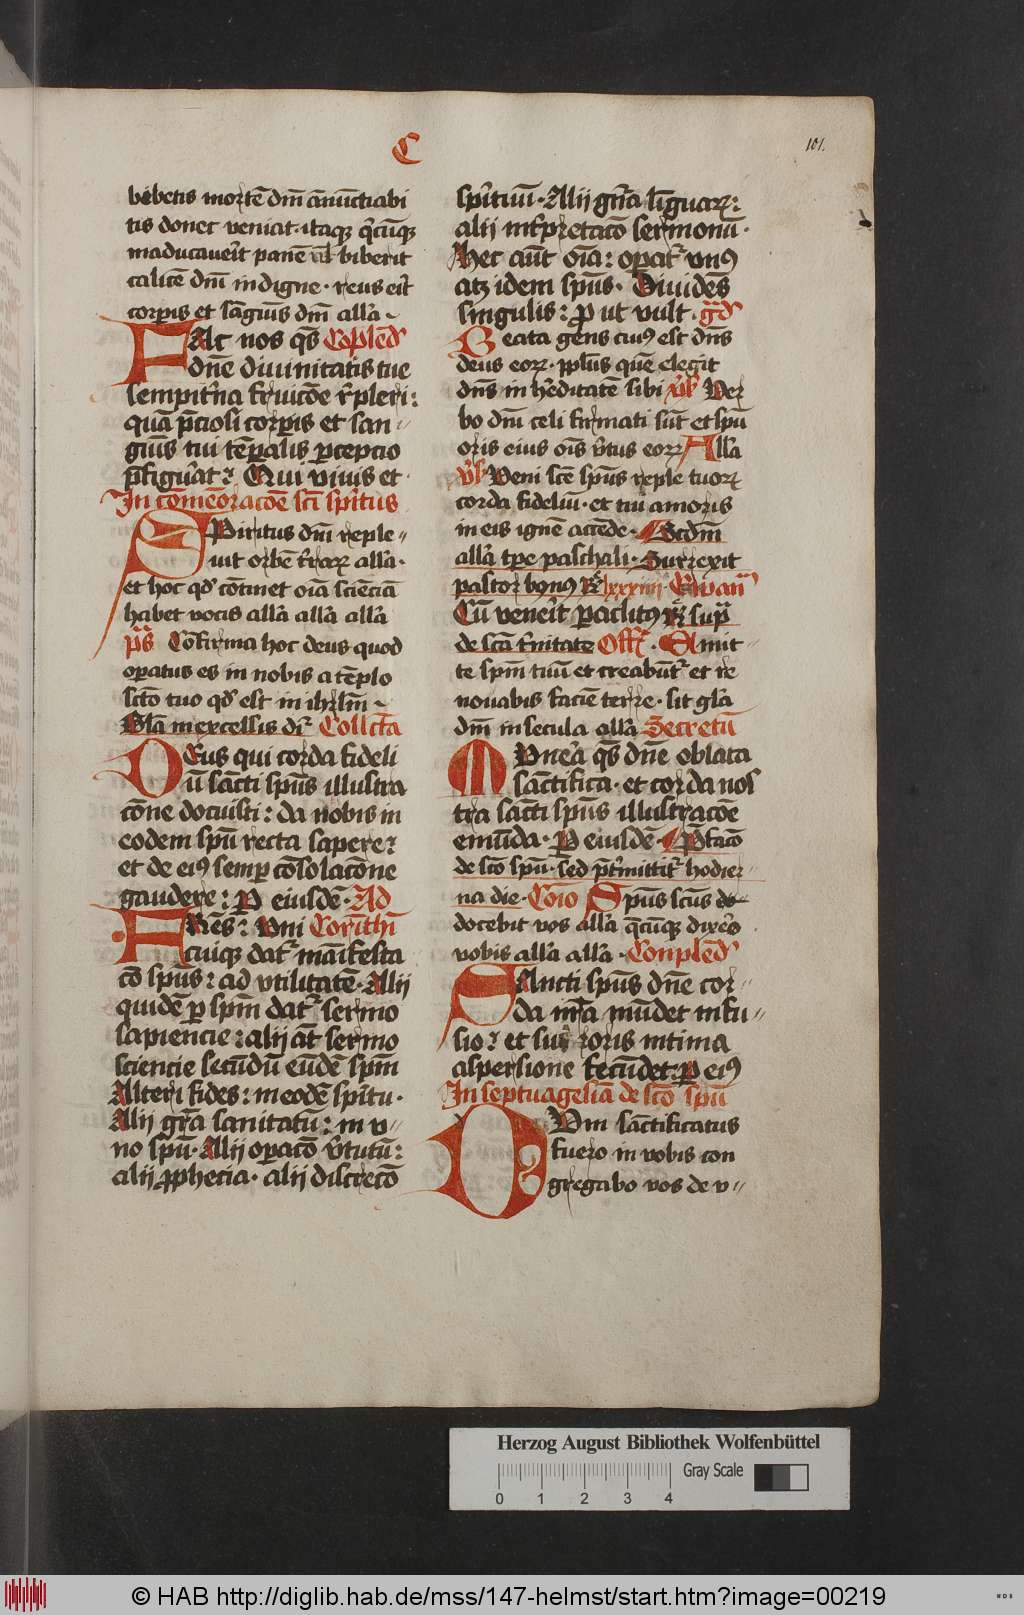 C
101.
bibetis mortē dm̄ ānūctiabi
tis donec veniat. itaqꝫ q̄cūqꝫ
māducaverit panē vel biberit
calicē dn̄i indigne. reus erit
corꝑis et sāguīs dn̄i all'a
FAc nos qs̄ Coplēd
dn̄e divinitatis tue
sempit'na fruicōe r'pleri:
quā p̄ciosi corꝑis et san
guīs tui tēꝑalis ꝑcepcio
p̄figurat. Qui vivis et
In cōmēoracōe scī sp̄ritus
SPiritus dn̄i reple
uit orbē t'raꝝ all'a.
et hoc qd' cōtinet oīa sciēciā
habet vocis all'a all'a all'a
p̄s Cōfirma hoc deus quod
oꝑatus es in nobis a tēplo
scto tuo qd' est in ihrlm̄
Gl'a in excelsis d' Collcta
DEus qui corda fideli
ū sācti sp̄us illustra
cōne docuisti: da nobis in
eodem sp̄u recta sapere:
et de eiꝰ semꝑ cōsolacōne
gaudere: P eiusdē. Ad
FRēs: Vni Corīthi
cuiqꝫ dat' māifesta
cō sp̄us: ad vtilitatē. Alij
quidē ꝑ spm̄ dat' sermo
sapiencie: alij āt sermo
sciencie secūdū eūdē spm̄
Alteri fides: in eodē sp̄ritu.
Alij gr̄a sanitatū: in v
no sp̄u. Alij oꝑacō v'tutū:
alij ꝓphecia. alij discrecō
sp̄rituū. Alij gn̄a līguaꝝ:
alij int'pretacō sermonū.
Hec aūt oīa: oꝑat' vnꝰ
atqꝫ idem sp̄us. Dividēs
singulis: ꝓ ut vult. ḡd
Beata gens cuiꝰ est dn̄s
deus eoꝝ. ppl'us quē elegit
dn̄s in h'editatē sibi v̄s Ver
bo dn̄i celi firmati sūt et sp̄u
oris eius oīs v'tus eoꝝ All'a
v̄s Veni scē sp̄us reple tuoꝝ
corda fideliū. et tui amoris
in eis ignē accēde. Scdm̄
all'a tꝑe paschali. Surrexit
pastor bonus R lxxxiiii Ewan
Cū venerit ꝑaclitꝰ R sup̄
de scā t'nitate Off. Emit
te spm̄ tuū et creabūt' et re
novabis faciē terre. sit gl'a
dn̄i in secula all'a Secretū
MVnera qs̄ dn̄e oblata
sāctifica. et corda nos
tra sācti sp̄us illustracōe
emūda. P eiusdē. P̄facō
de scō sp̄u. sed p̄t'mittit' hodier
na die. Cōīo Sp̄us scūs
docebit vos all'a q̄cūqꝫ dixero
vobis all'a all'a. Conplēd
SAncti sp̄us dn̄e cor
da nr̄a mūdet infu
sio: et sui roris intima
aspersione fecūdet: P eiꝰ
In septuagesīa de scō sp̄u
CVm sāctificatus
fuero in vobis con
gregabo vos de v
Herzog August Bibliothek Wolfenbüttel
Gray Scale
0 1 2 3 4
© HAB http://diglib.hab.de/mss/147-helmst/start.htm?image=00219